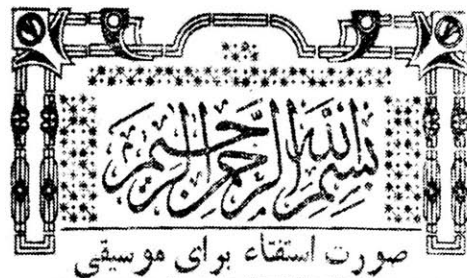 بسم الله الرحمن الرحیم
صورت استفتاء برای موسیقی